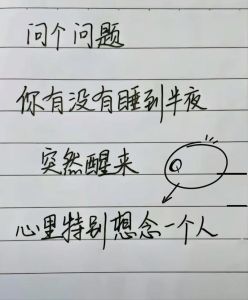 问个问题
你有没有睡到半夜
突然醒来
心里特别想念一个人